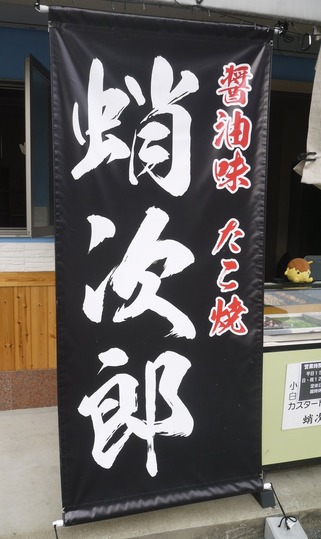 醤油味 たこ焼
蛸次郎
営業時間
小
白
カスター
蛸次